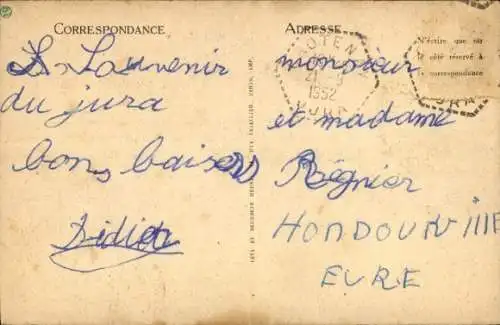 CORRESPONDANCE
Souvenir
du jura
bons baisers
Didier
ADRESSE
monsieur
et madame
Régnier
HONDOUVIllE
EURE
1952
JURA
N'écrire que sur
le côté réservé à
la correspondance